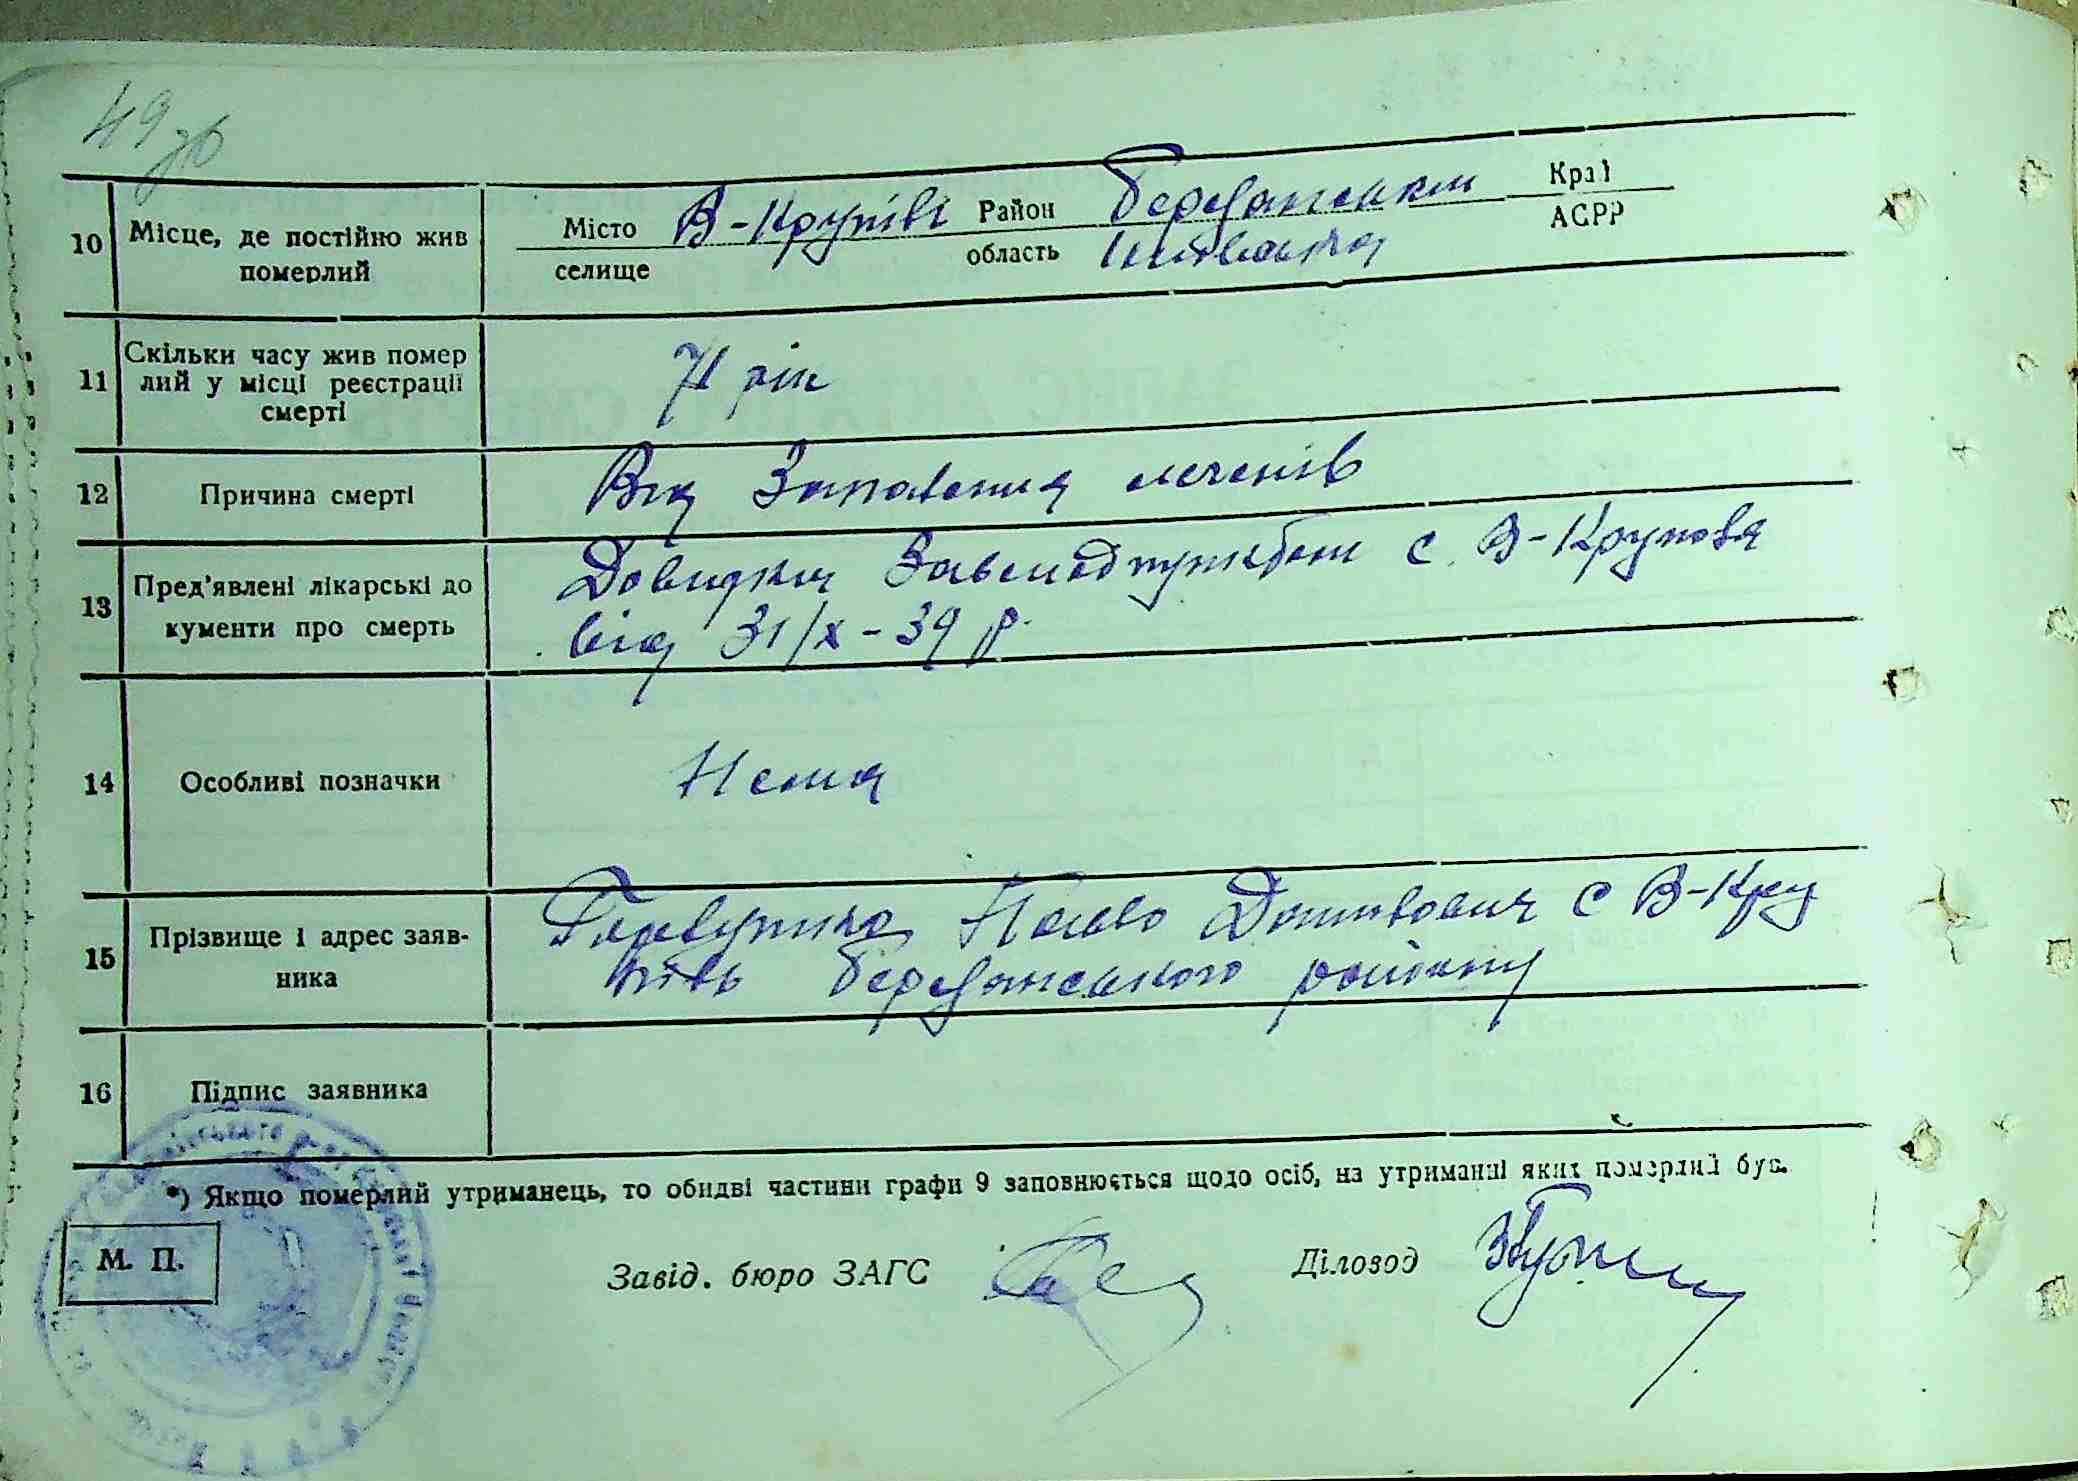 49 зв
10 Місце, де постійно жив померлий Місто селище В-Крупіль Район область Березанський Київська Край АСРР
11 Скільки часу жив помер лий у місці реєстрації смерті 71 рік
12 Причина смерті Від Запалення легенів
13 Пред'явлені лікарські до кументи про смерть Довидка Завмедпунктом с. В-Круполя
від 31/X-39 р.
14 Особливі позначки Нема
15 Прізвище і адрес заяв- ника Павло с В-Кру
піль Березанського району
16 Підпис заявника
*) Якщо померлий утриманець, то обидві частини графи 9 заповнюється щодо осіб, на утриманні яких померлий був.
М. П. Завід. бюро ЗАГС Діловод